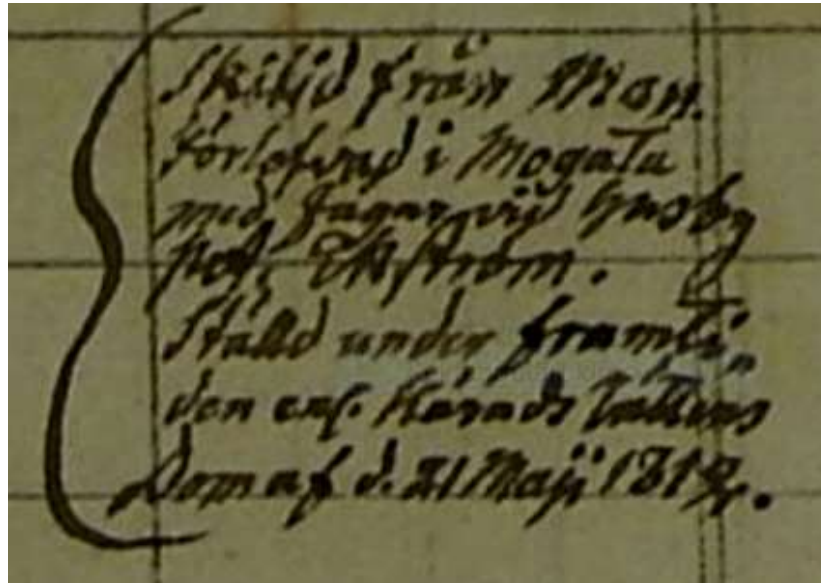 Skilld från Man.
förlofvad i Mogata
med Jägar. vid Husby
Ekström.
Ställd under framti,
den enl. Härads Rättens
Dom af d. 21 Maji